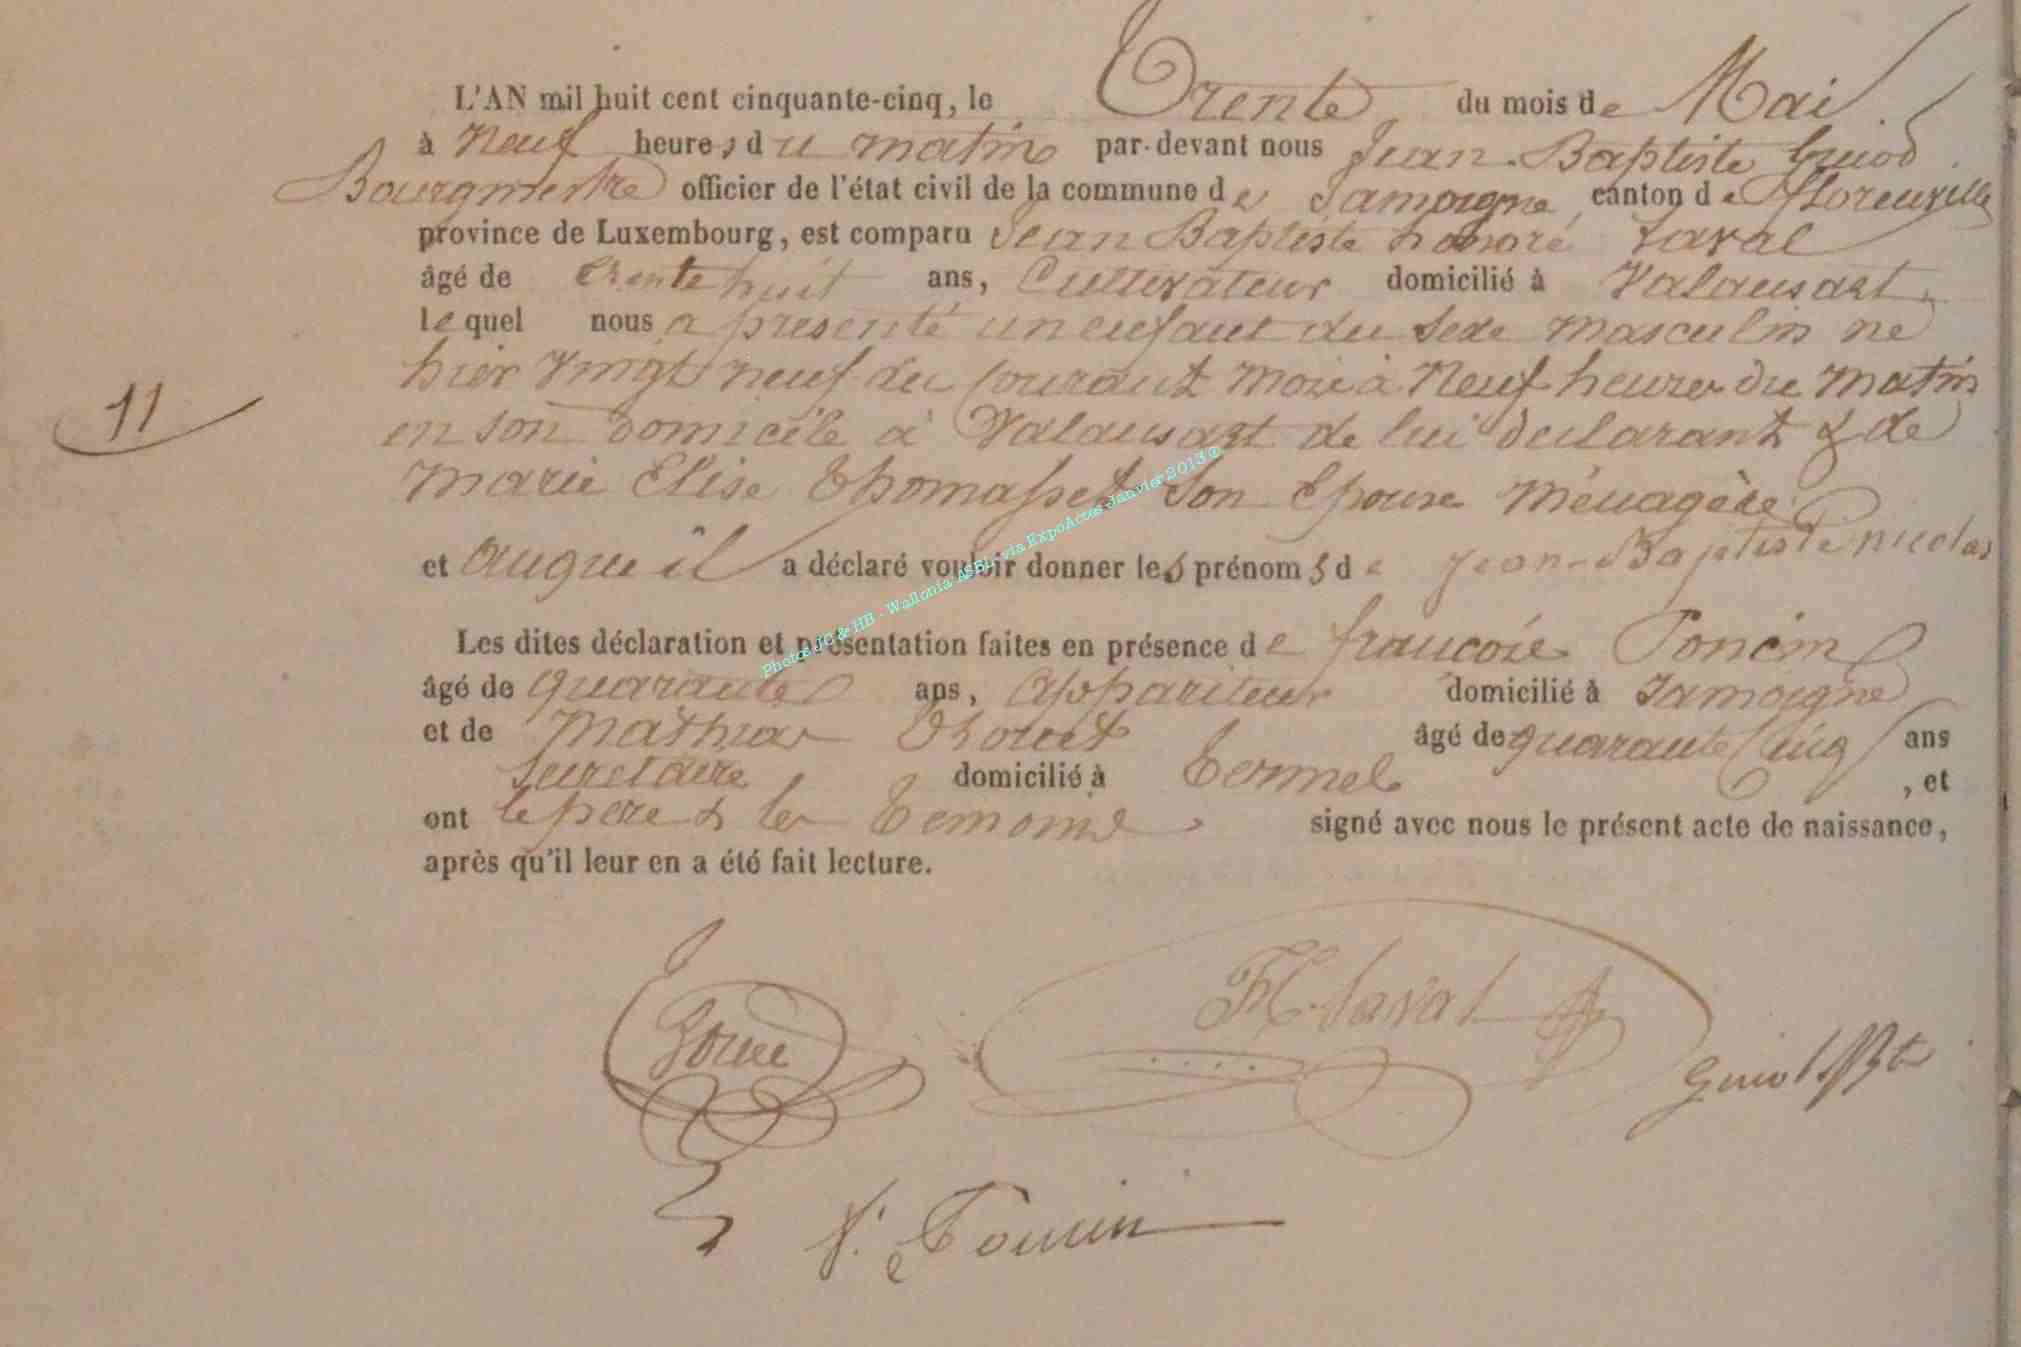 L'AN mil huit cent cinquante-cinq, le Trente du mois de Mai
à neuf heures du matin par-devant nous Jean-Baptiste Guiot
Bourgmestre officier de l'état civil de la commune de Jamoigne canton de Florenville
province de Luxembourg, est comparu Jean Baptiste honoré Laval
âgé de trente huit ans, Cultivateur domicilié à Valansart
lequel nous a présenté un enfant du sexe masculin né
hier vingt neuf du courant mois à neuf heures du matin
11
en son domicile à Valansart de lui déclarant & de
Marie Elise Thomasset son Epouse ménagère
et auquel il a déclaré vouloir donner les prénoms de Jean-Baptiste nicolas
Photos JC & HB - Wallonia ASBL via ExpoActes Janvier 2013 ©
Les dites déclaration et présentation faites en présence de françois Poncin
âgé de quarante ans, appariteur domicilié à Jamoigne
et de Mathias âgé de quarante cinq ans
secretaire domicilié à Termes , et
ont le père & les temoins signé avec nous le présent acte de naissance,
après qu'il leur en a été fait lecture.
Laval
Guiot JBte
f. Poncin